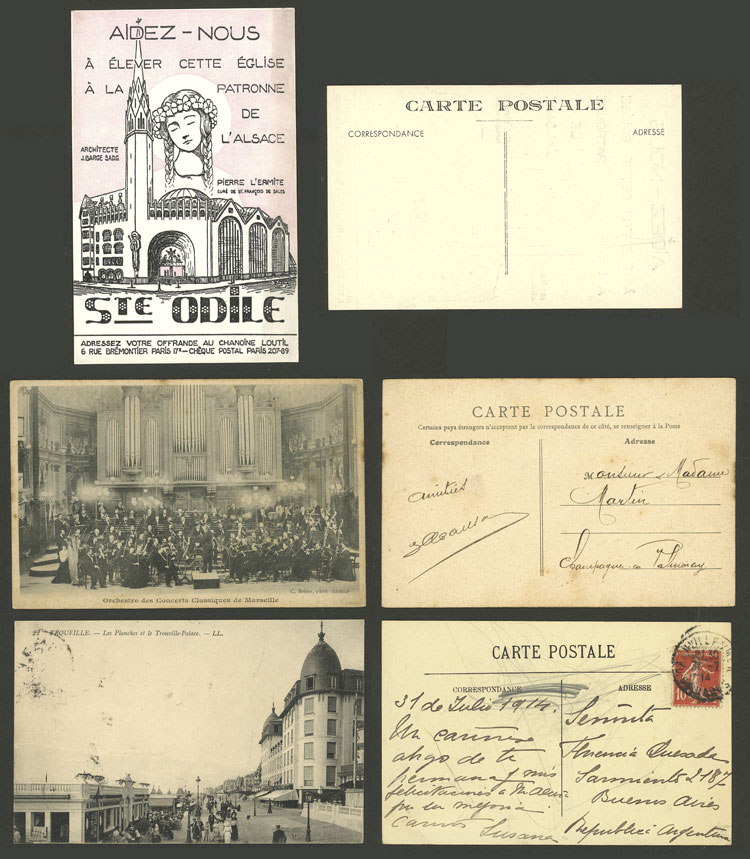 AIDEZ-NOUS
À ÉLEVER CETTE ÉGLISE
À LA PATRONNE
DE
L'ALSACE
ARCHITECTE
J. BARGE SADG
PIERRE L'ERMITE
CURÉ DE ST. FRANÇOIS DE SALES
STE ODILE
ADRESSEZ VOTRE OFFRANDE AU CHANOINE LOUTIL
6 RUE BRÉMONTIER PARIS 17E – CHÈQUE POSTAL PARIS 207-89
CARTE POSTALE
CORRESPONDANCE
ADRESSE
Orchestre des Concerts Classiques de Marseille
CARTE POSTALE
Certains pays étrangers n'acceptent pas la correspondance de ce côté, se renseigner à la Poste
Correspondance
Adresse
amitiés
Monsieur Madame
Martin
Champagne
22 TROUVILLE. — Les Planches et le Trouville-Palace. — LL.
CARTE POSTALE
CORRESPONDANCE
ADRESSE
31 de Julio 1914.
Un
de tu
hermana y mis
felicitaciones a
por su mejoria.
Susana
Señorita
Florencia Quesada
Sarmiento 2187
Buenos Aires
Republica Argentina
10